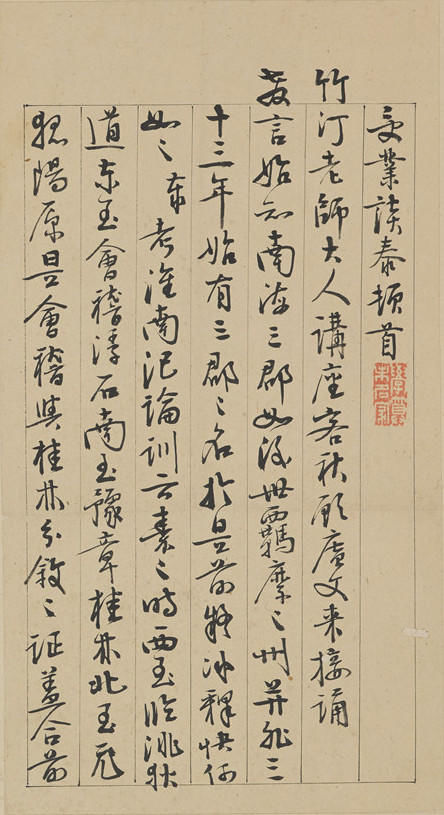 受業談泰頓首
竹汀老師大人講座客秋顧廣文來接誦
教言始知南海三郡如後世羈縻之州并非三
十三年始有三郡之名於是前疑冰釋快何
如之泰考淮南氾論訓云秦之時西至臨洮狄
道東至會稽浮石南至豫章桂林北至飛
狐陽原是會稽與桂林分敘之証蓋合前